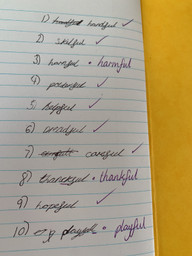 1) handful ✓
2) skilful ✓
3) harmful • harmful
4) powerful ✓
5) helpful ✓
6) dreadful ✓
7) careful ✓
8) thanckful • thankful
9) hopeful ✓
10) playful • playful